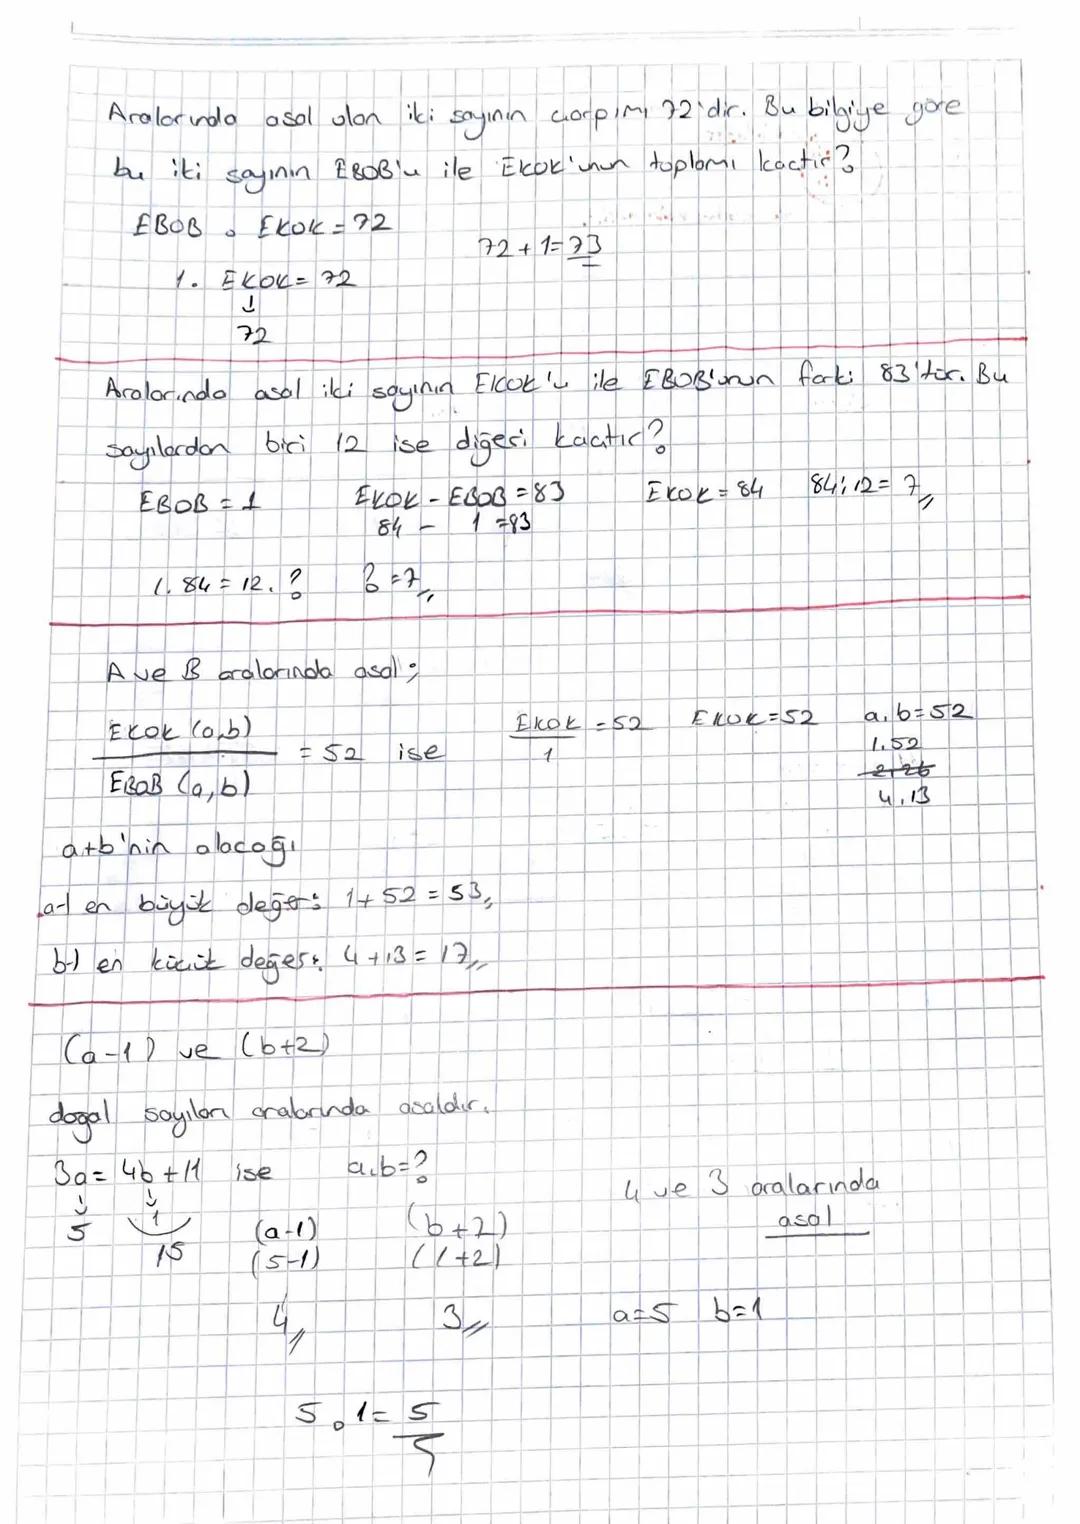 Aralarında asal olan iki sayının çarpımı 72'dir. Bu bilgiye göre
bu iki sayının EBOB'u ile EKOK'unun toplamı kaçtır?
EBOB . EKOK = 72
72 + 1 = 73
1. EKOK = 72
↓
72
Aralarında asal iki sayının EKOK'u ile EBOB'unun farkı 83'tür. Bu
sayılardan biri 12 ise diğeri kaçtır?
EBOB = 1 EKOK - EBOB = 83 EKOK = 84 84 : 12 = 7
84 - 1 = 83
1. 84 = 12 . ? ? = 7
A ve B aralarında asal ;
EKOK (a,b) / EBOB (a,b) = 52 ise
EKOK / 1 = 52 EKOK = 52 a.b = 52
1.52
2.26
4.13
a+b'nin alacağı
a-) en büyük değer: 1 + 52 = 53
b-) en küçük değer: 4 + 13 = 17
(a-1) ve (b+2)
doğal sayıları aralarında asaldır.
3a = 4b + 11 ise a.b = ?
↓ ↓
5 1
15
(a-1) (b+2)
(5-1) (1+2)
4 3
4 ve 3 aralarında
asal
a=5 b=1
5 . 1 = 5